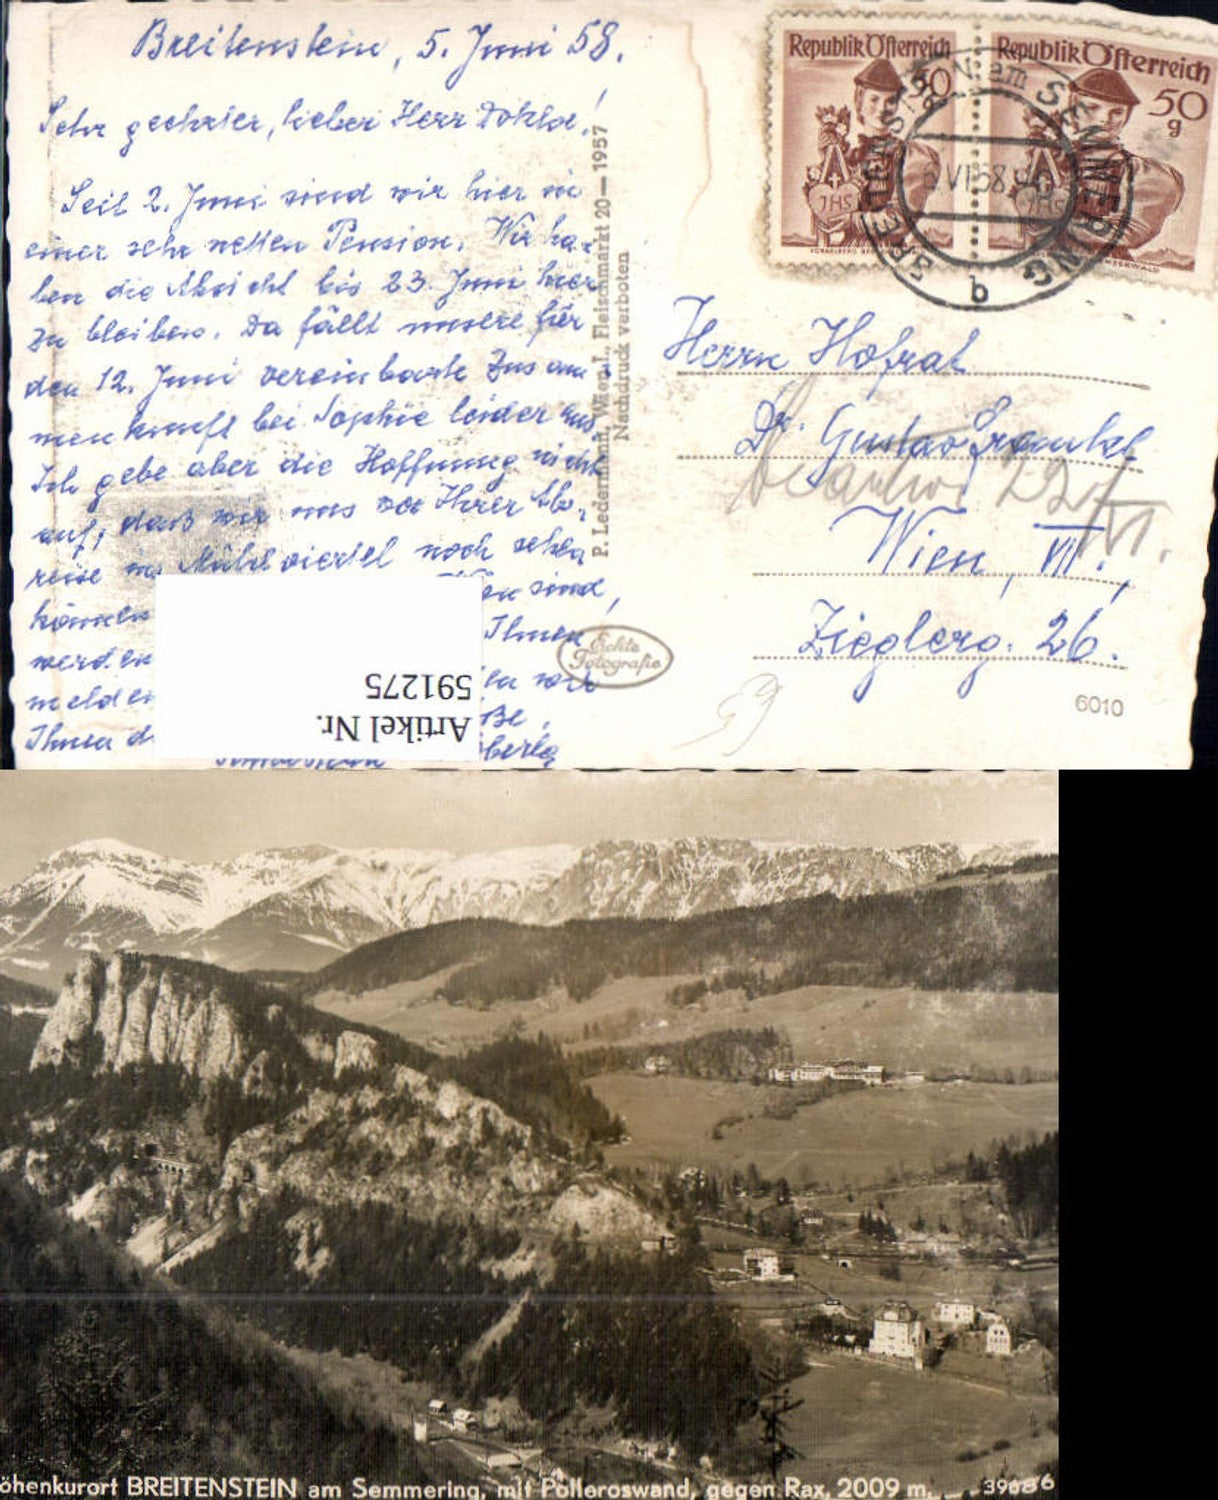 Breitenstein, 5. Juni 58.
Sehr geehrter, lieber Herr Doktor!
Seit 2. Juni sind wir hier in
einer sehr netten Pension. Wir ha-
ben die Absicht bis 23. Juni hier
zu bleiben. Da fällt unsere für
den 12. Juni vereinbarte Zusam-
menkunft bei Sophie leider aus.
Ich gebe aber die Hoffnung nicht
auf, daß wir uns vor Ihrer Ab-
reise ins Mühlviertel noch sehen
können sind,
werden Ihnen
melden wir
Ihnen
Artikel Nr.
591275
P. Ledermann, Wien I., Fleischmarkt 20—1957
Nachdruck verboten
Echte
Fotografie
Republik Österreich
50
JHS
Republik Österreich
50
g
JHS
BREITENSTEIN am SEMMERING
VI 58
b
Herrn Hofrat
Dr. Gustav Frankl
Wien, VII.,
Zieglerg. 26.
59
6010
öhenkurort BREITENSTEIN am Semmering, mit Polleroswand, gegen Rax, 2009 m.